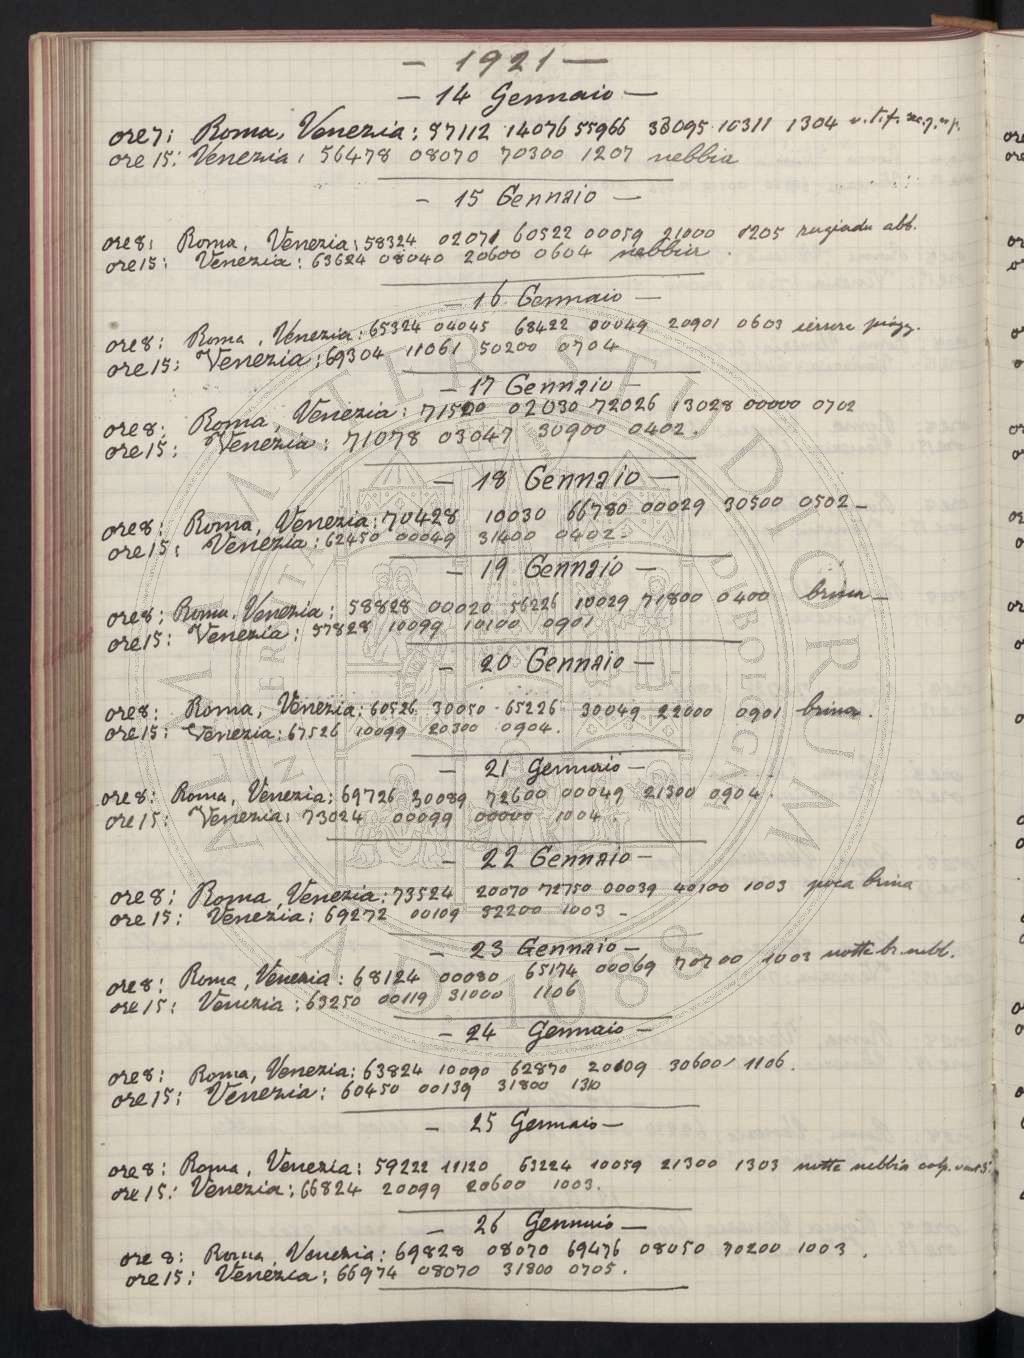 - 1921 -
- 14 Gennaio -
ore 7: Roma, Venezia: 57112 14076 55966 38095 10311 1304
ore 15: Venezia: 56478 08070 70300 1207 nebbia
- 15 Gennaio -
ore 8: Roma, Venezia: 58324 02071 60522 00059 21000 1205 rugiada abb.
ore 15: Venezia: 63624 08040 20600 0604 nebbia.
- 16 Gennaio -
ore 8: Roma, Venezia: 65324 04045 68422 00049 20901 0603
ore 15: Venezia: 69304 11061 50200 0704
- 17 Gennaio -
ore 8: Roma, Venezia: 71520 02030 72026 13028 00000 0702
ore 15: Venezia: 71078 03047 30900 0402.
- 18 Gennaio -
ore 8: Roma, Venezia: 70428 10030 66780 00029 30500 0502-
ore 15: Venezia: 62450 00049 31400 0402-
- 19 Gennaio -
ore 8: Roma, Venezia: 58828 00020 56226 10029 71800 0400 brina-
ore 15: Venezia: 57828 10099 10100 0901
- 20 Gennaio -
ore 8: Roma, Venezia: 60526 30050 - 65226 30049 22000 0901 brina.
ore 15: Venezia: 67526 10099 20300 0904.
- 21 Gennaio -
ore 8: Roma, Venezia: 69726 30089 72600 00049 21300 0904.
ore 15: Venezia: 73024 00099 00000 1004.
- 22 Gennaio -
ore 8: Roma, Venezia: 73524 20070 72750 00039 40100 1003 poca brina
ore 15: Venezia: 69272 00109 32200 1003-
- 23 Gennaio -
ore 8: Roma, Venezia: 68124 00080 65174 00069 70700 1003 notte br. nebb.
ore 15: Venezia: 63250 00119 31000 1106
- 24 Gennaio -
ore 8: Roma, Venezia: 63824 10090 62870 20109 30600 1106.
ore 15: Venezia: 60450 00139 31800 1310
- 25 Gennaio -
ore 8: Roma, Venezia: 59222 11120 63224 10059 21300 1303 notte nebbia
ore 15: Venezia: 66824 20099 20600 1003.
- 26 Gennaio -
ore 8: Roma, Venezia: 69828 08070 69476 08050 70200 1003.
ore 15: Venezia: 66974 08070 31800 0705.
ALMA MATER STUDIORUM
A.D. 1088